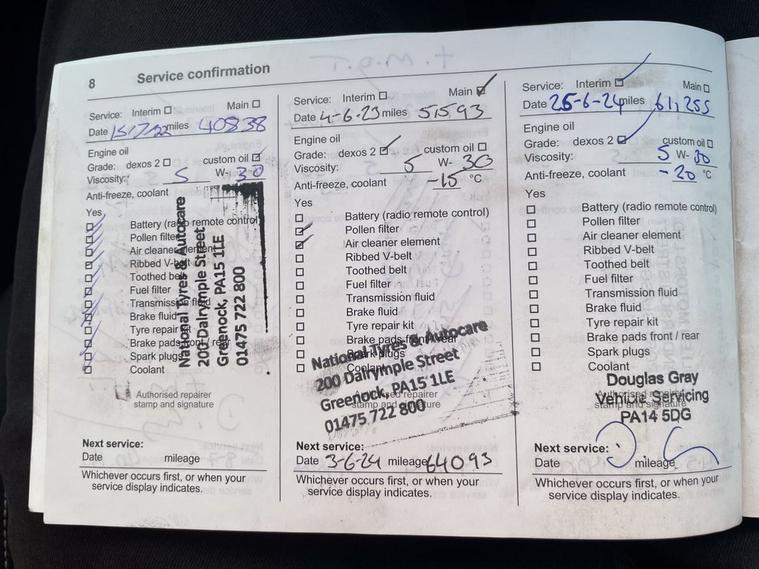 8 Service confirmation
Service: Interim Main
Date 15/7/22 miles 40838
Engine oil
Grade: dexos 2 custom oil
Viscosity: 5 W- 30
Anti-freeze, coolant
Yes
Battery (radio remote control)
Pollen filter
Air cleaner element
Ribbed V-belt
Toothed belt
Fuel filter
Transmission fluid
Brake fluid
Tyre repair kit
Brake pads front / rear
Spark plugs
Coolant
National Tyres & Autocare
200 Dalrymple Street
Greenock, PA15 1LE
01475 722 800
Authorised repairer
stamp and signature
Next service:
Date mileage
Whichever occurs first, or when your
service display indicates.
Service: Interim Main
Date 4-6-23 miles 51593
Engine oil
Grade: dexos 2 custom oil
Viscosity: 5 W- 30
Anti-freeze, coolant -15 °C
Yes
Battery (radio remote control)
Pollen filter
Air cleaner element
Ribbed V-belt
Toothed belt
Fuel filter
Transmission fluid
Brake fluid
Tyre repair kit
Brake pads front / rear
Spark plugs
Coolant
National Tyres & Autocare
200 Dalrymple Street
Greenock, PA15 1LE
01475 722 800
Authorised repairer
stamp and signature
Next service:
Date 3-6-24 mileage 64093
Whichever occurs first, or when your
service display indicates.
Service: Interim Main
Date 26-6-24 miles 61,255
Engine oil
Grade: dexos 2 custom oil
Viscosity: 5 W- 30
Anti-freeze, coolant -20 °C
Yes
Battery (radio remote control)
Pollen filter
Air cleaner element
Ribbed V-belt
Toothed belt
Fuel filter
Transmission fluid
Brake fluid
Tyre repair kit
Brake pads front / rear
Spark plugs
Coolant
Douglas Gray
Vehicle Servicing
PA14 5DG
Authorised repairer
stamp and signature
Next service:
Date mileage
Whichever occurs first, or when your
service display indicates.